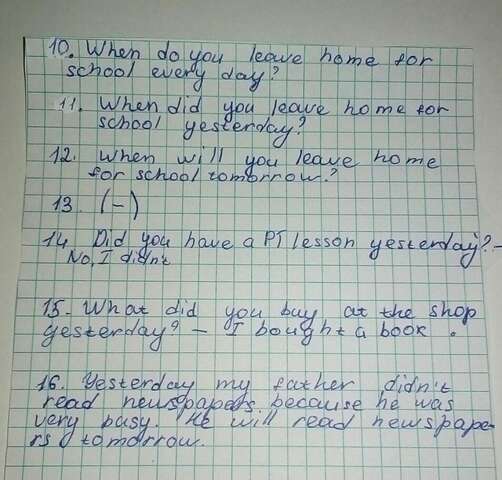 10. When do you leave home for
school every day?
11. When did you leave home for
school yesterday?
12. When will you leave home
for school tomorrow?
13. (-)
14. Did you have a PT lesson yesterday? -
No, I didn't
15. What did you buy at the shop
yesterday? - I bought a book.
16. Yesterday my father didn't
read newspapers because he was
very busy. He will read newspape-
rs tomorrow.